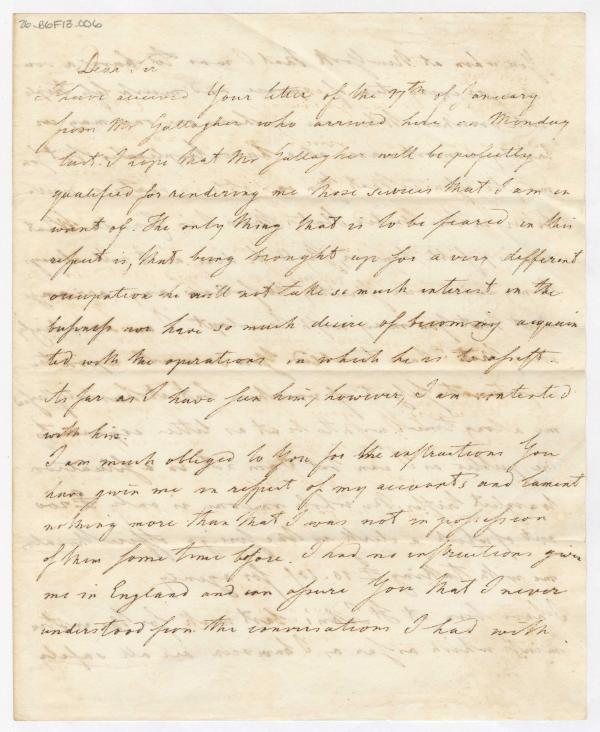 26-B6F13.006
Dear Sir
I have received Your letter of the 27th of January
from Mr Gallagher who arrived here on Monday
last. I hope that Mr Gallagher will be perfectly
qualified for rendering me those services that I am in
want of. The only thing that is to be feared in this
respect is, that being brought up for a very different
occupation he will not take so much interest in the
business nor have so much desire of becoming acquain
ted with the operations in which he is to assist.
As far as I have seen him, however, I am contented
with him.
I am much obliged to You for the instructions You
have given me in respect of my accounts and lament
nothing more than that I was not in possession
of them some time before. I had no instructions given
me in England and can assure You that I never
understood from the conversations I had with